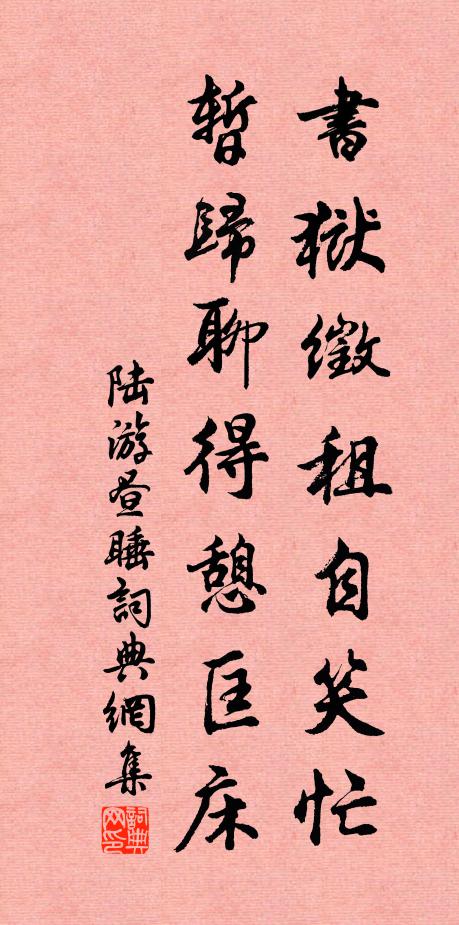 書獄徵租自笑忙
暫歸聊得憩匡床
陆游昼睡詞典網集
詞典網印